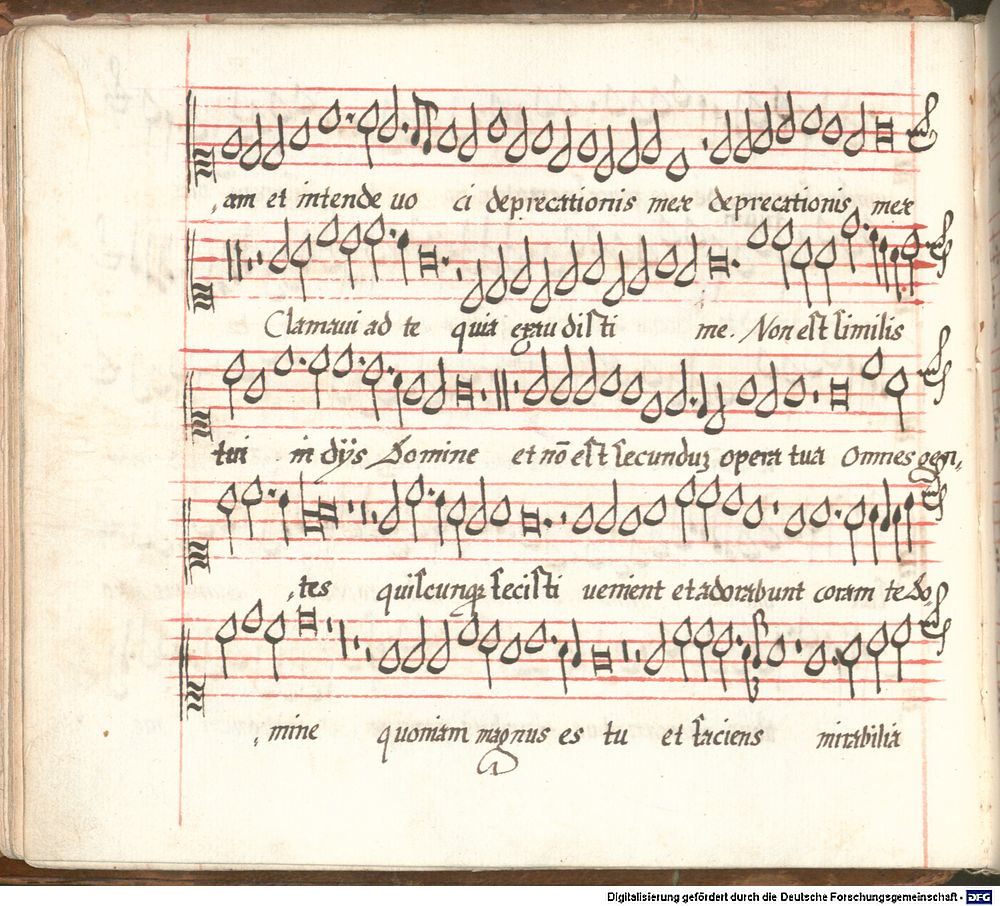 am et intende uo ci deprecationis meæ deprecationis meæ
Clamaui ad te quia exau disti me. Non est similis
tui in dijs Domine et nõ est secunduʒ opera tua Omnes gen,
tes quiscunqʒ fecisti uenient et adorabunt coram te do,
mine quoniam magnus es tu et faciens mirabilia
3
Digitalisierung gefördert durch die Deutsche Forschungsgemeinschaft - DFG